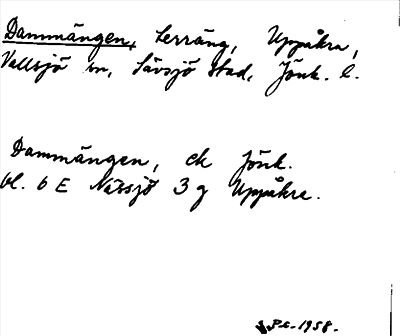 Dammängen, terräng, Uppåkra,
Vallsjö sn, Sävsjö stad, Jönk. l.
Dammängen, ek Jönk.
bl. 6 E Nässjö 3 g Uppåkra.
1958.